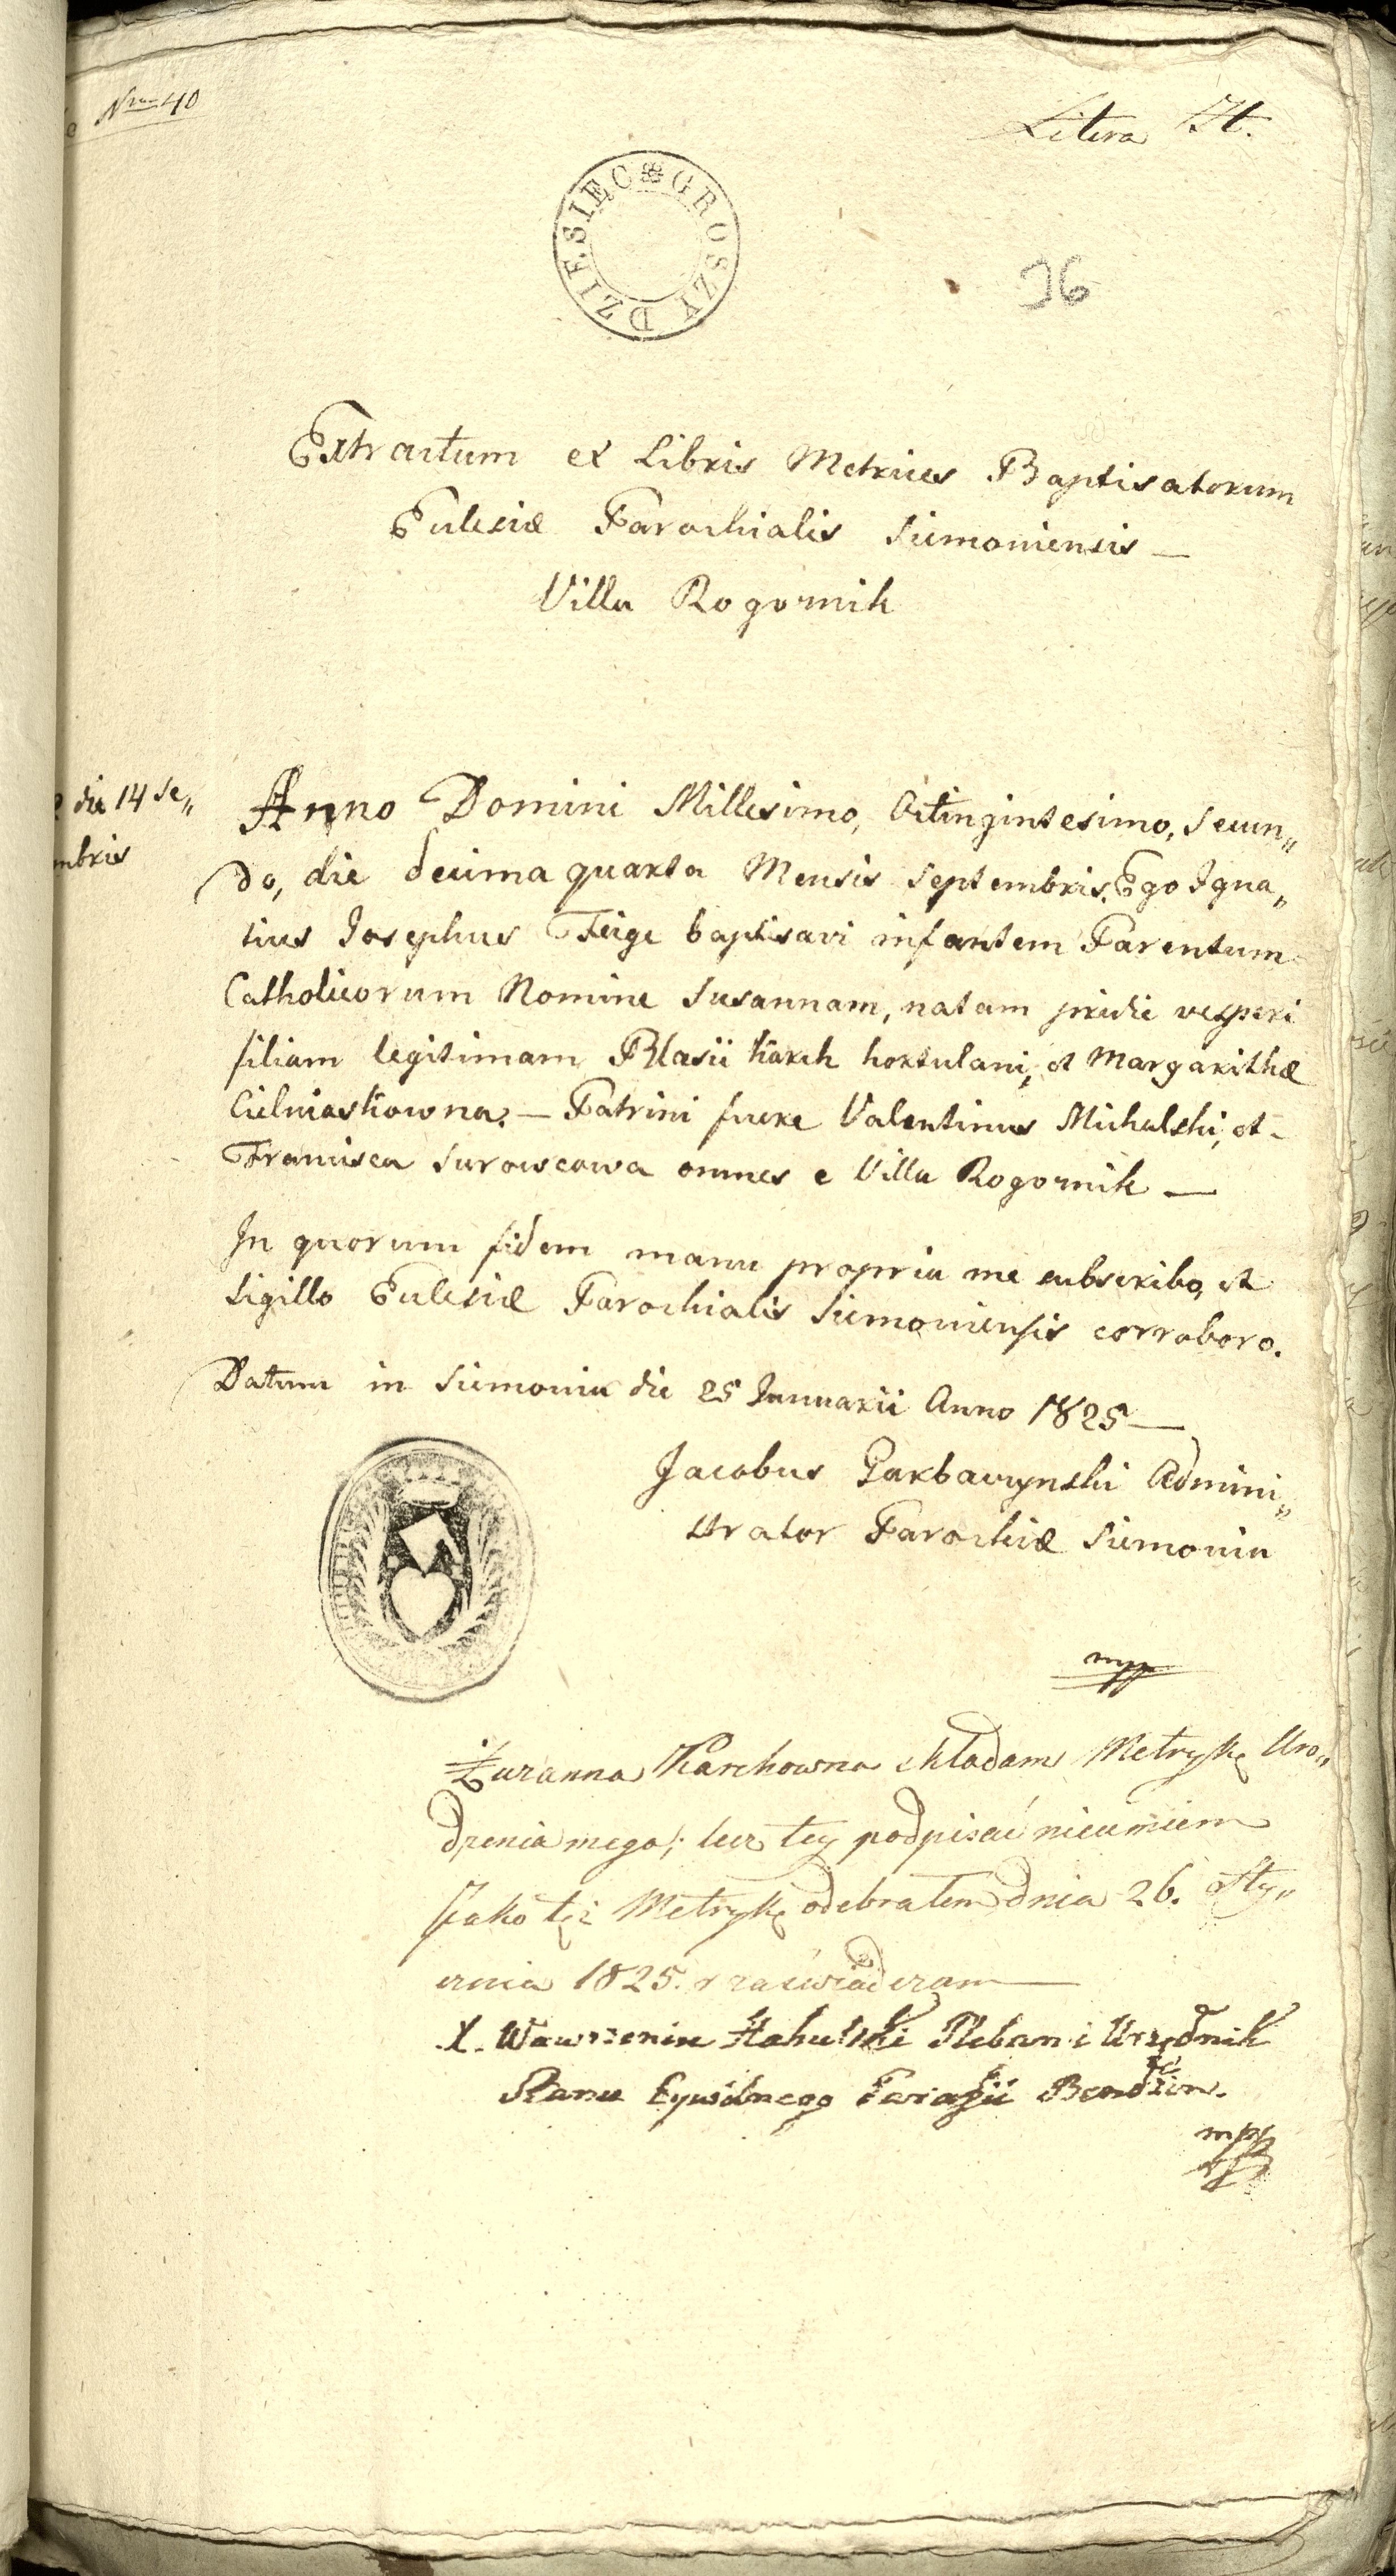 Nro 40
Litera H.
DZIESIĘC GROSZY
36
Extractum ex Libris Metrices Baptisatorum
Ecclesiæ Parochialis Siemoniensis —
Villa Rogoznik
die 14 Se„
mbris
Anno Domini Millesimo, Octingintesimo, Secun„
do, die decima quarta Mensis Septembris, Ego Igna„
tius Josephus Feige baptisavi infantem Parentum
Catholicorum Nomine Susannam, natam pridie vesperi
filiam legitimam Blasii Karch hortulani, et Margarithæ
Cielniaskowna. — Patrini fuere Valentinus Michalski, et
Francisca omnes e Villa Rogoznik —
In quorum fidem manu propria me subscribo, et
Sigillo Ecclesiæ Parochialis Siemoniensis corroboro.
Datum in Siemonia die 25 Januarii Anno 1825 —
Jacobus Garbaczynski Admini„
strator Parochiæ Siemonia
mpp
Zuzanna Karchowna składam Metrykę Uro„
dzenia mego; lecz tey podpisać nieumiem
Jako też Metrykę odebrałem dnia 26. Sty„
cznia 1825. r zaświadczam —
X. Wawrzeniec Pleban i Urzędnik
Stanu Cywilnego Parafii Bendzin.
mpp